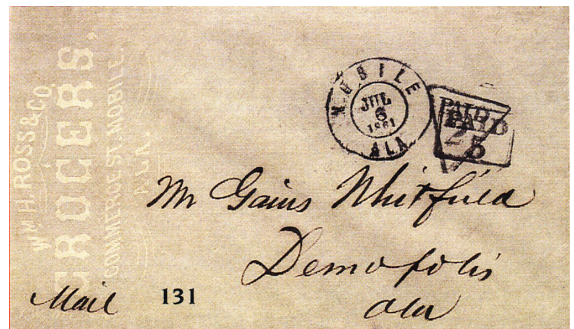 WM. H. ROSS & CO.
GROCERS,
COMMERCE ST. MOBILE,
ALA.
MOBILE
JUL
6
1861
ALA
PAID
5
Mr Gains Whitfield
Demopolis
Ala
Mail
131